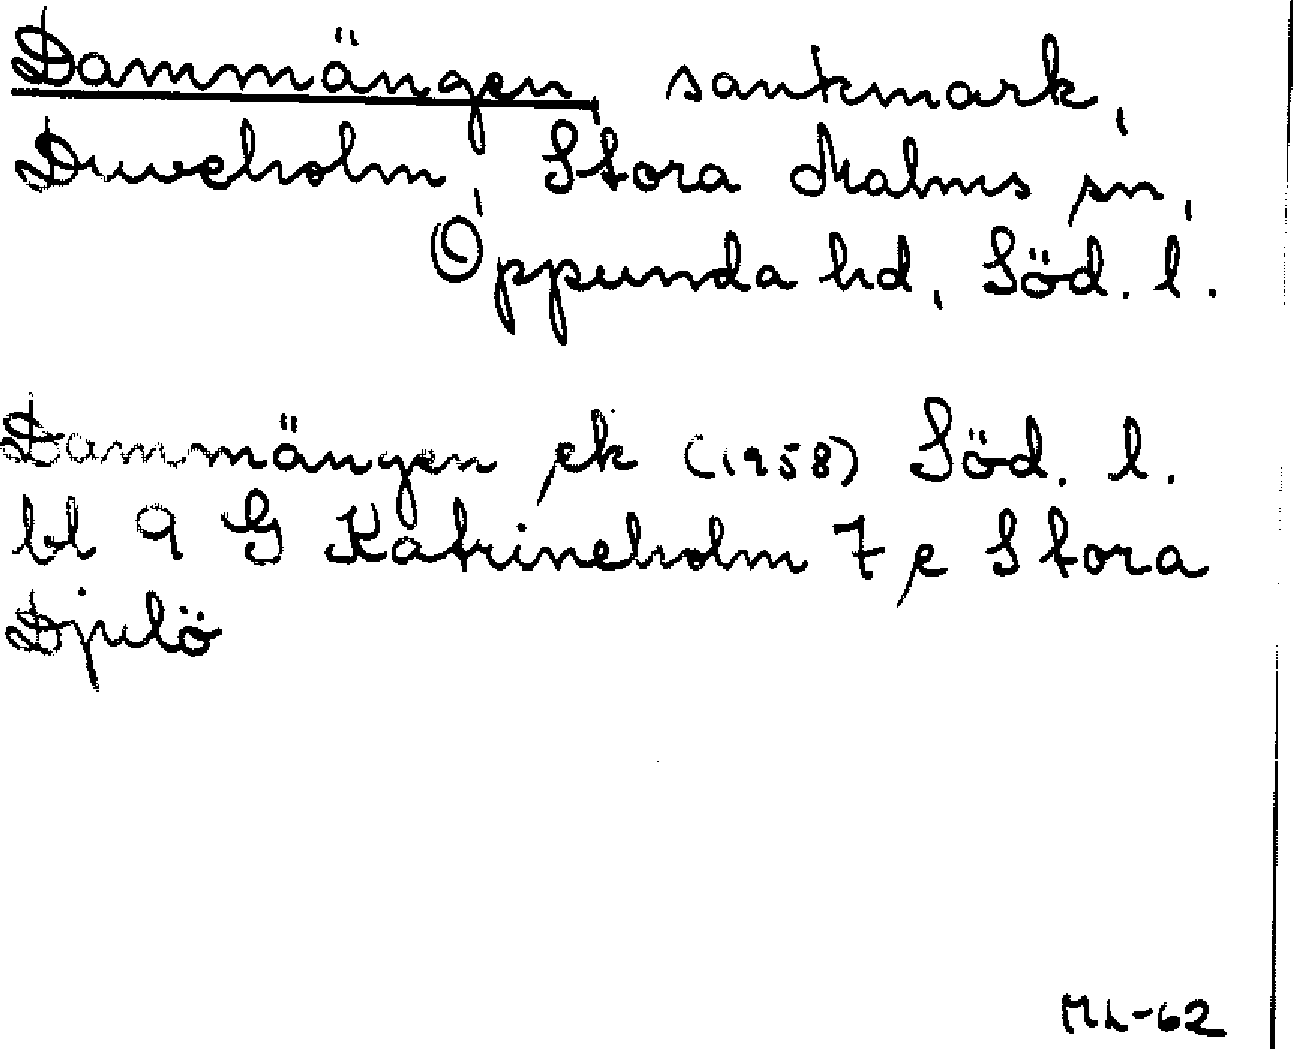 Dammängen, sankmark,
Duveholm, Stora Malms sn,
Oppunda hd, Söd. l.
Dammängen ek (1958) Söd. l.
bl 9 G Katrineholm 7 e Stora
Djulö
ML-62